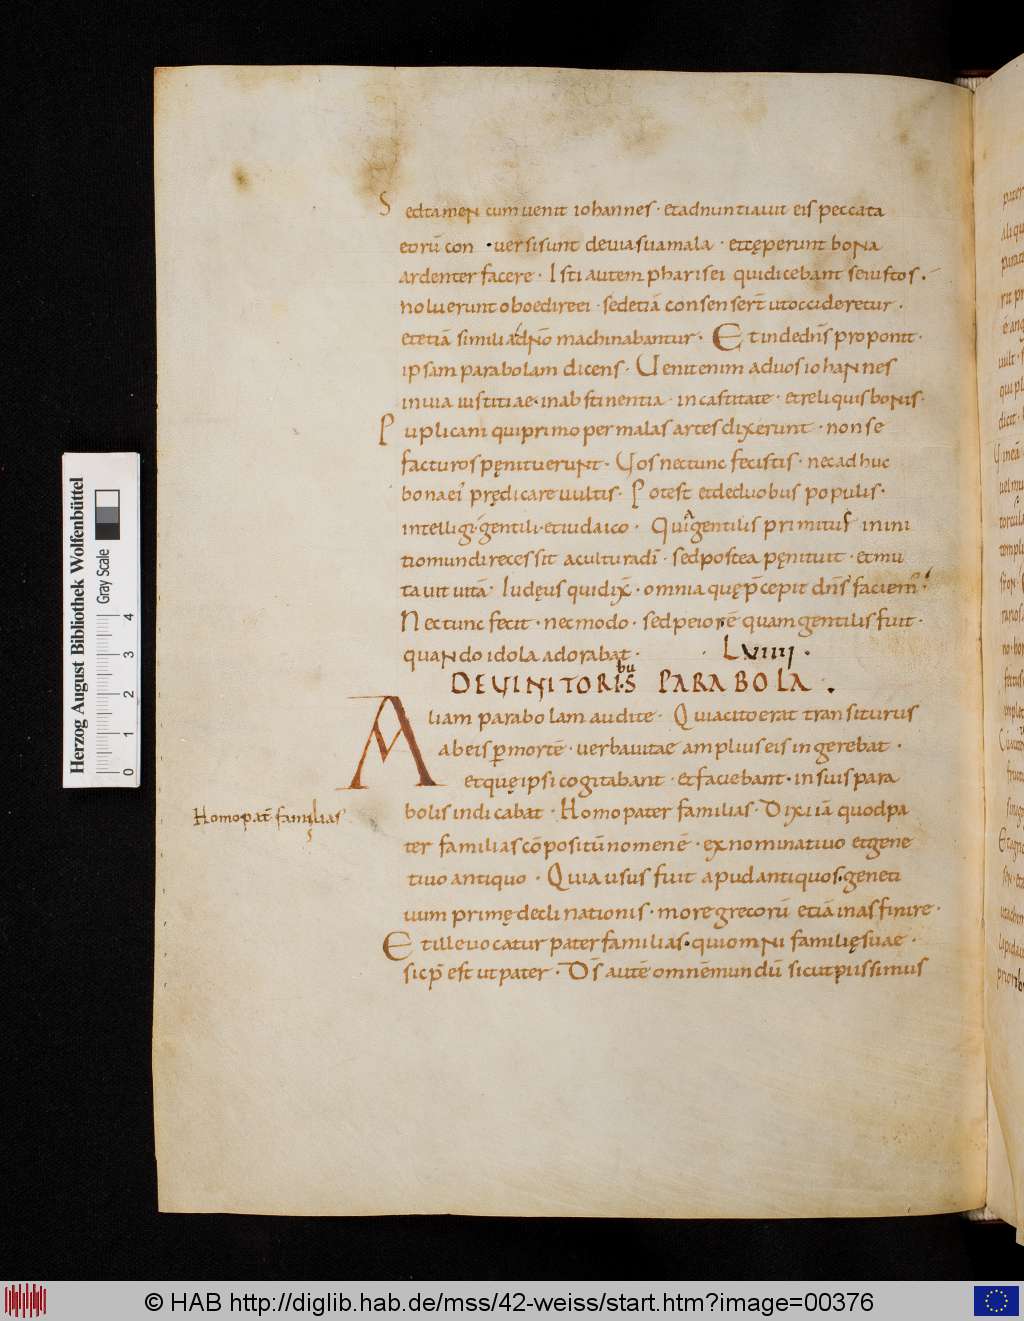 Sed tamen cum uenit iohannes · et adnuntiauit eis peccata
eorū con · uersi sunt de uia sua mala · et cęperunt bona
ardenter facere · Isti autem pharisei qui dicebant se iustos .
noluerunt oboedire ei · sed etiā consenser̄t ut occideretur .
et etiā similia dn̄o machinabantur · Et inde dn̄s proponit ·
ipsam parabolam dicens · Uenit enim ad uos iohannes
in uia iustitiae · in abstinentia · in castitate · et reliquis bonis ·
Puplicani qui primo per malas artes dixerunt · non se
facturos pęnituerunt · Uos nec tunc fecistis · nec ad huc
bona ei prędicare uultis · Potest et de duobus populis ·
intelligi · gentili · et iudaico · Quia gentilis primitus in ini
tio mundi recessit a cultura dī · sed postea pęnituit · et mu
tauit uitā · Iudęus qui dix̄ · omnia quę p̄cepit dn̄s faciem̄ ·
Nec tunc fecit · nec modo · sed peior ē quam gentilis fuit ·
quando idola adorabat · · Lviiii ·
DE UINITORIBUS PARABOLA .
Aliam parabolam audite · Quia cito erat transiturus
ab eis p̱ mortē · uerba uitae amplius eis ingerebat ·
et quę ipsi cogitabant · et faciebant · in suis para
bolis indicabat · Homo pater familias · Dixi iā quod pa
Homo pat̄ familias
ter familias cōpositū nomen ē · ex nominatiuo et gene
tiuo antiquo · Quia usus fuit apud antiquos · geneti
uum primę declinationis · more grecorū etiā in as finire ·
Et ille uocatur pater familias · qui omni familię suae ·
sic p̄est ut pater · Ds̄ autē omnē mundū sicut piissimus
Herzog August Bibliothek Wolfenbüttel
Gray Scale
0 1 2 3 4
© HAB http://diglib.hab.de/mss/42-weiss/start.htm?image=00376